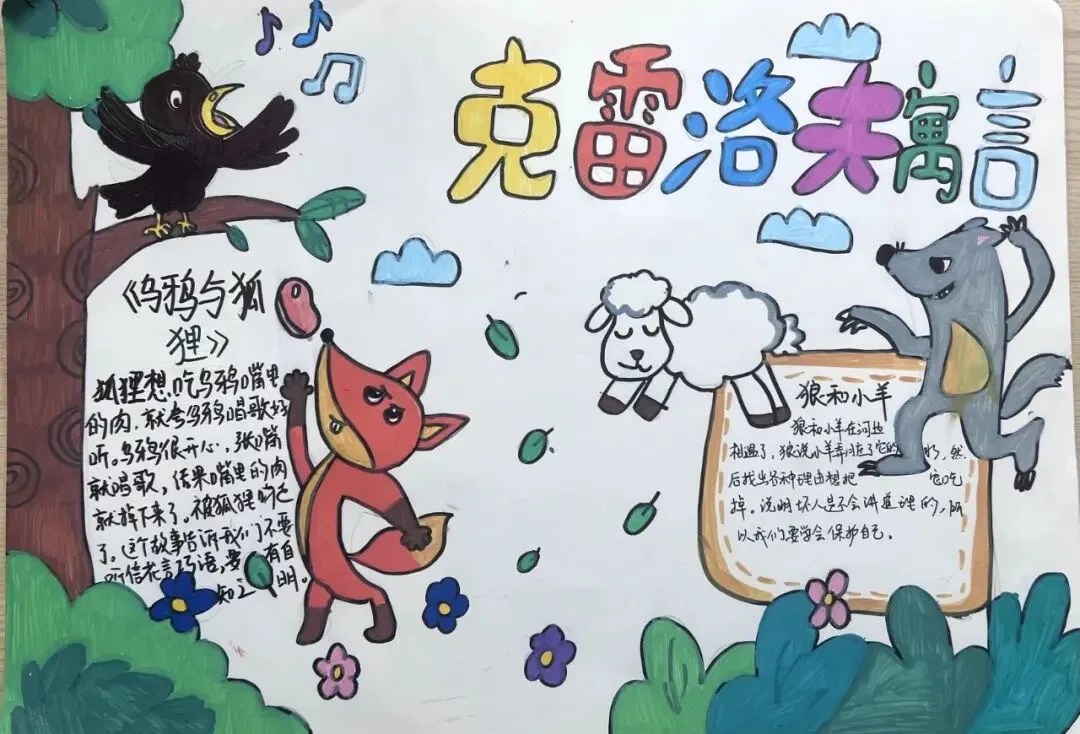 克雷洛夫寓言
《乌鸦与狐
狸》
狐狸想吃乌鸦嘴里
的肉，就夸乌鸦唱歌好
听，乌鸦很开心，张嘴
就唱歌，结果嘴里的肉
就掉下来了。被狐狸吃
了。这个故事告诉我们不要
听信花言巧语，要有自
知之明。
狼和小羊
狼和小羊在河边
相遇了，狼说小羊弄脏了它的 然
后找出各种理由想把 它吃
掉。说明坏人是不会讲道理的，所
以我们要学会保护自己。